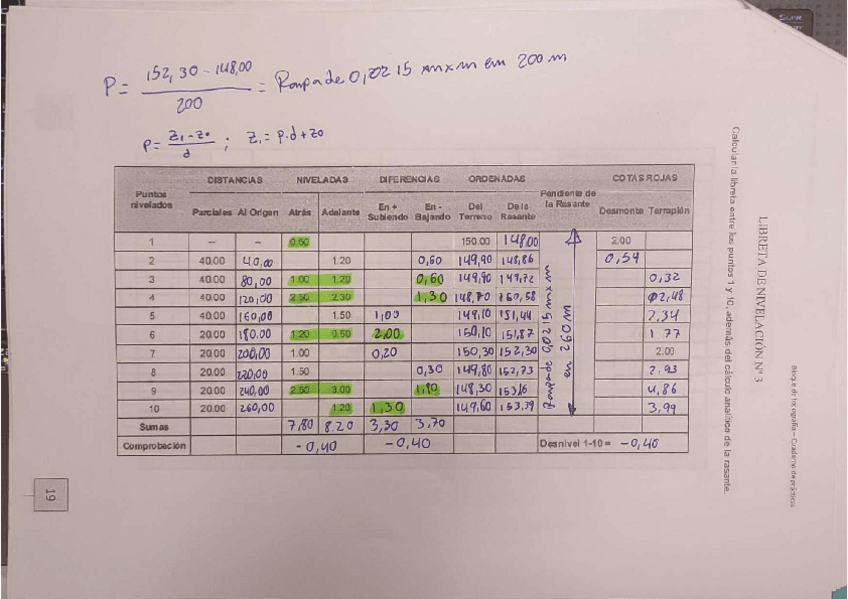 P = 152,30 - 148,00 / 200 = Rampa de 0,0215 m x m em 200 m
P = Z1 - Z0 / d ; Z1 = P·d + Z0
LIBRETA DE NIVELACIÓN Nº 3
Calcular la libreta entre los puntos 1 y 10, además del cálculo analítico de la rasante.
Puntos nivelados | DISTANCIAS | NIVELADAS | DIFERENCIAS | ORDENADAS | Pendiente de la Rasante | COTAS ROJAS
Parciales | Al Origen | Atrás | Adelante | En + Subiendo | En - Bajando | Del Terreno | De la Rasante | Desmonte | Terraplén
1 | -- | - | 0.60 | 150.00 | 148.00 | 2.00
2 | 40.00 | 40,00 | 1.20 | 0,60 | 149,90 | 148,86 | 0,54
3 | 40.00 | 80,00 | 1.00 | 1.20 | 0,60 | 149,72 | 0,32
4 | 40.00 | 120,00 | 2.50 | 2.30 | 1,30 | 2,48
5 | 40.00 | 160,00 | 1.50 | 1,00 | 149,10 | 151,44 | 2,34
6 | 20.00 | 180.00 | 1.20 | 0.50 | 2,00 | 150,10 | 151,87 | 1 77
7 | 20.00 | 200,00 | 1.00 | 0,20 | 150,30 | 152,30 | 2.00
8 | 20.00 | 220,00 | 1.50 | 0,30 | 149,80 | 152,73 | 2.93
9 | 20.00 | 240,00 | 2.50 | 3.00 | 148,30 | 153,16 | 4,86
10 | 20.00 | 260,00 | 1.20 | 1,30 | 149,60 | 153.59 | 3,99
Sumas | 7,80 | 8.20 | 3,30 | 3,70
Comprobación | -0,40 | -0,40 | Desnivel 1-10 = -0,40
en 260 m
Bloque de topografía – Cuaderno de prácticas
19